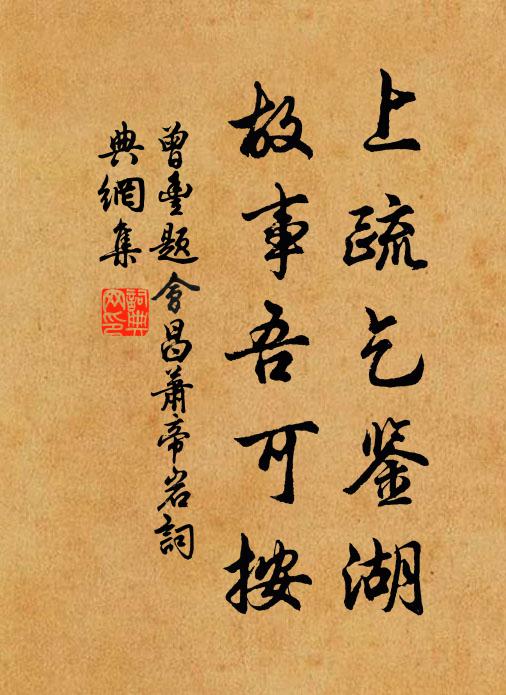 上疏乞鉴湖
故事吾可按
曾豊题会昌萧帝岩詞
典網集
詞典网印